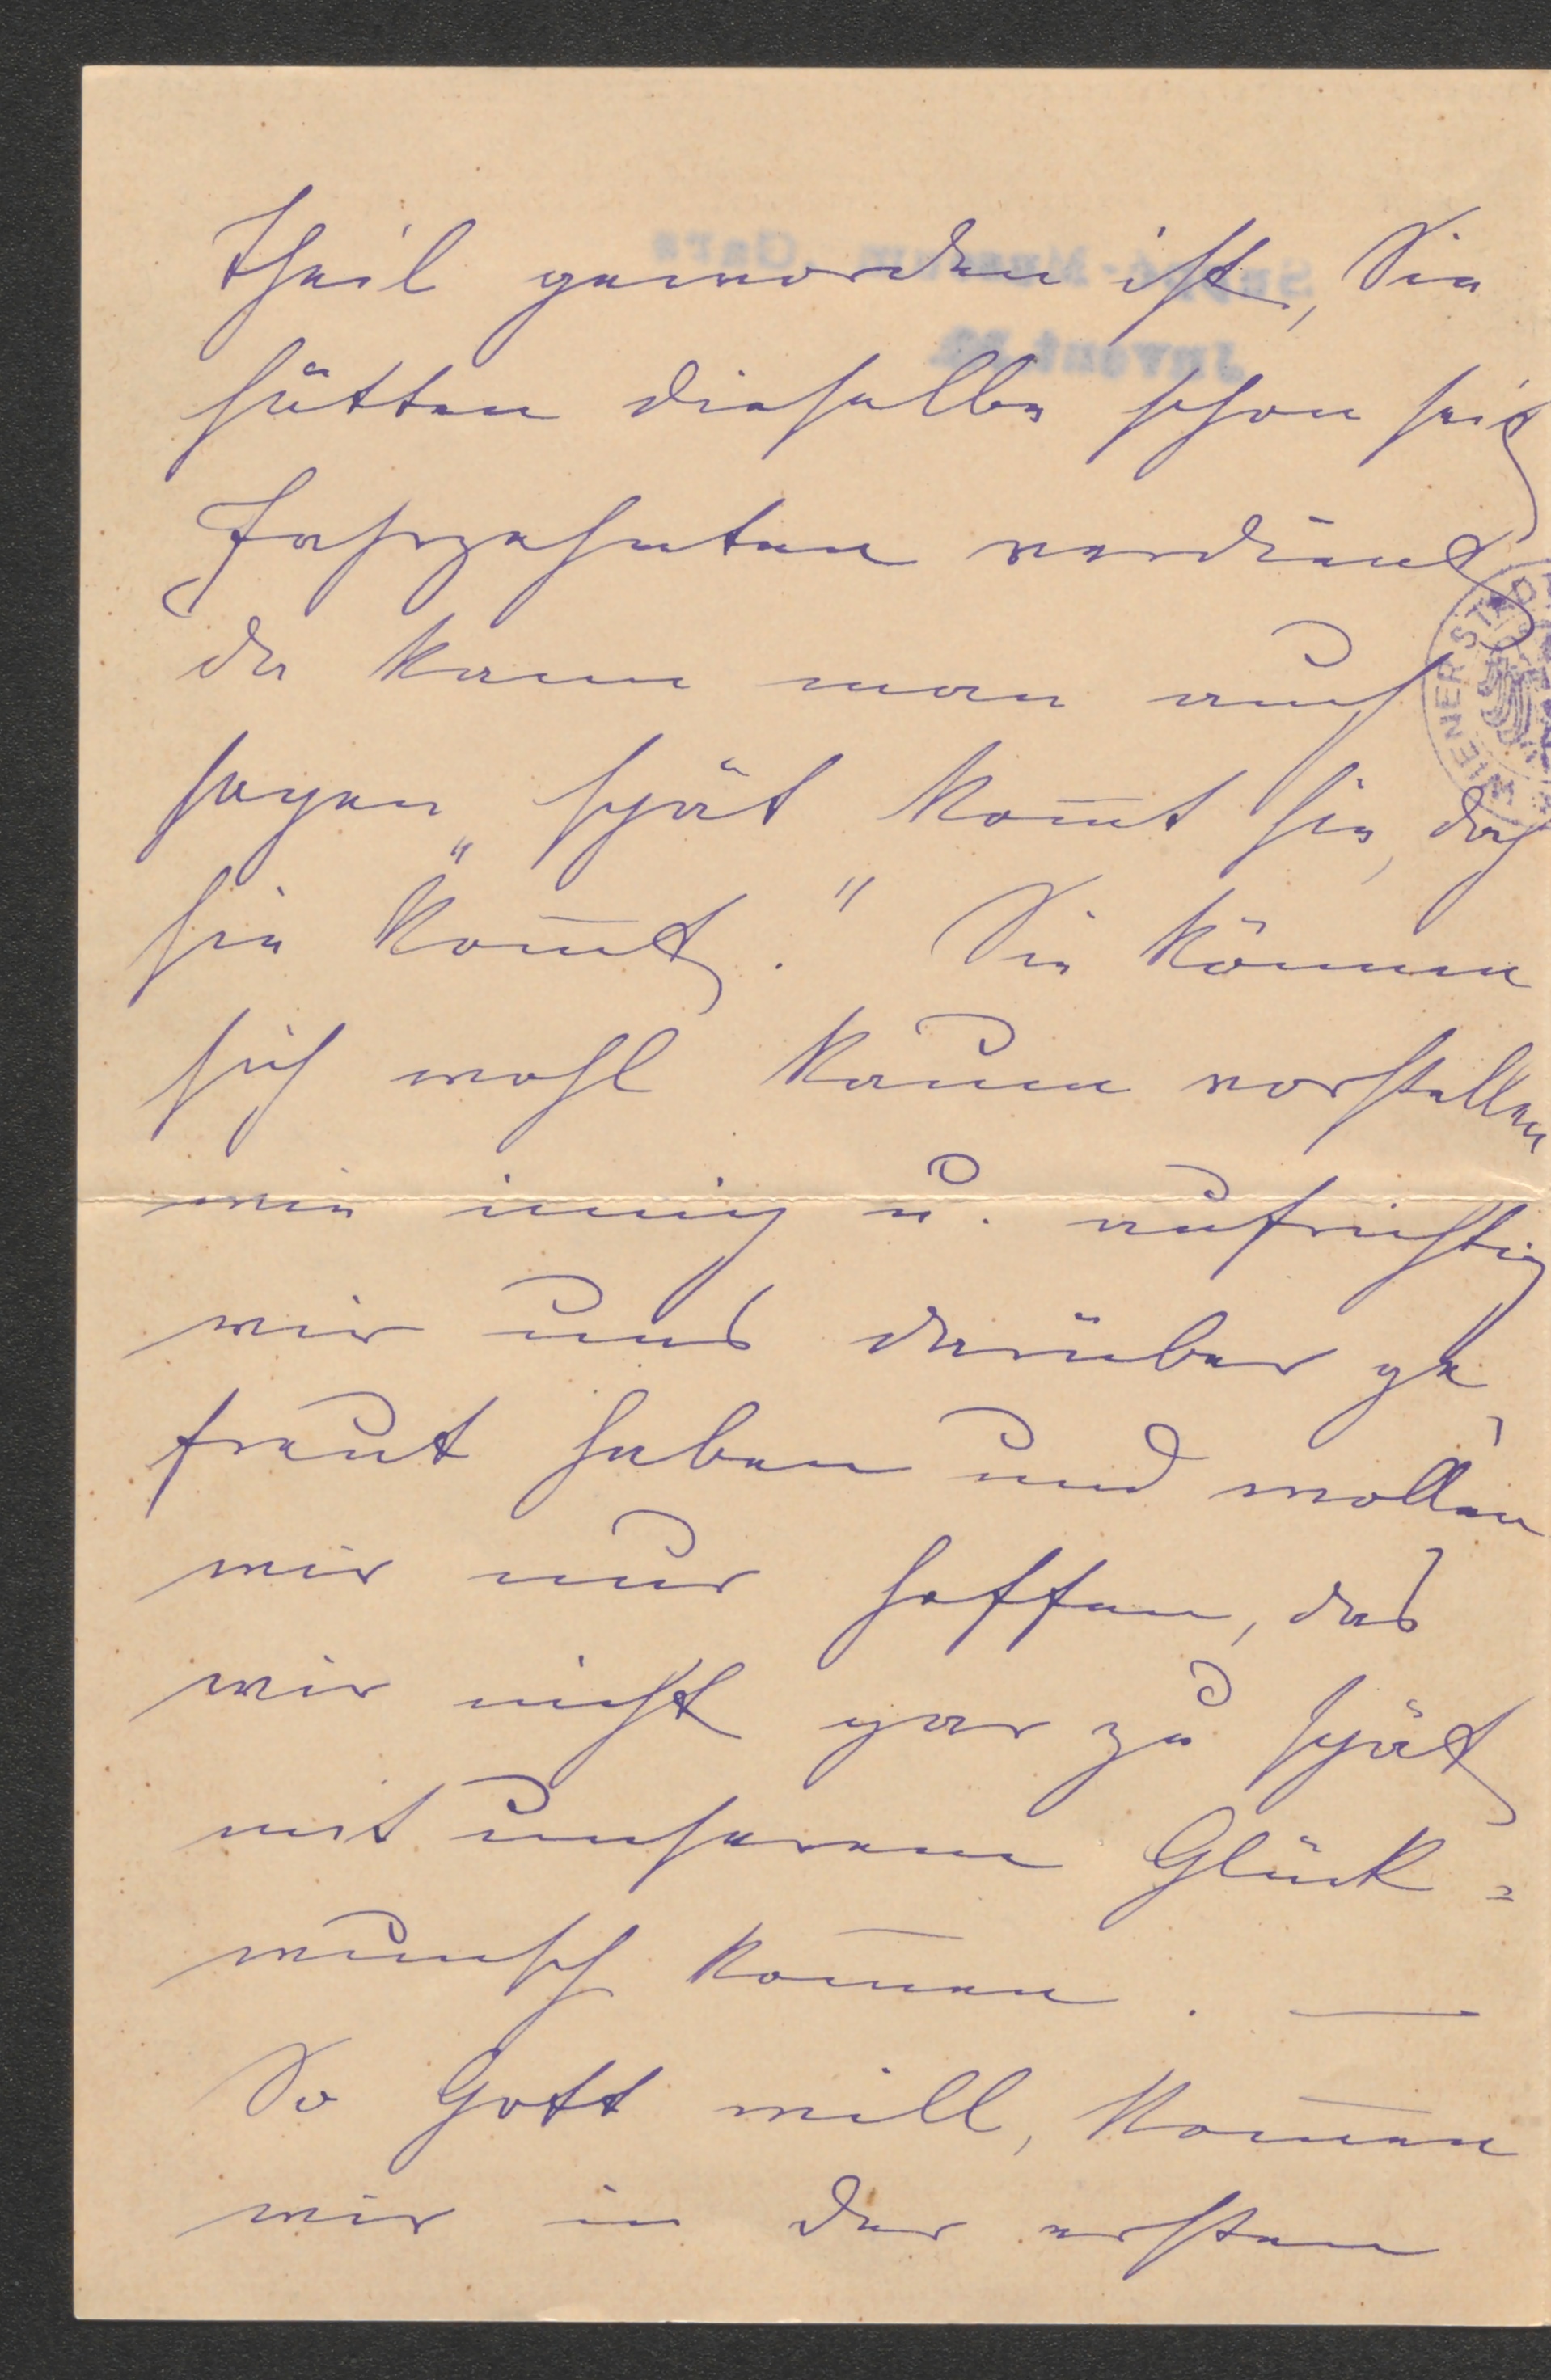 theil geworden ist, Sie
hätten dieselbe schon seit
Jahrzehnten verdient
da kann man auch
sagen „spät kom̄t sie, doch
sie kom̄t." Sie können
sich wohl kaum vorstellen
wie innig u. aufrichtig
wir uns darüber ge¬
freut haben und wollen
wir nur hoffen, das
wir nicht gar zu spät
mit unserem Glück=
wunsch kom̄en. —
So Gott will, kom̄en
wir in der ersten
Suppé-Museum, Gars
Invent.
WIENER STADT